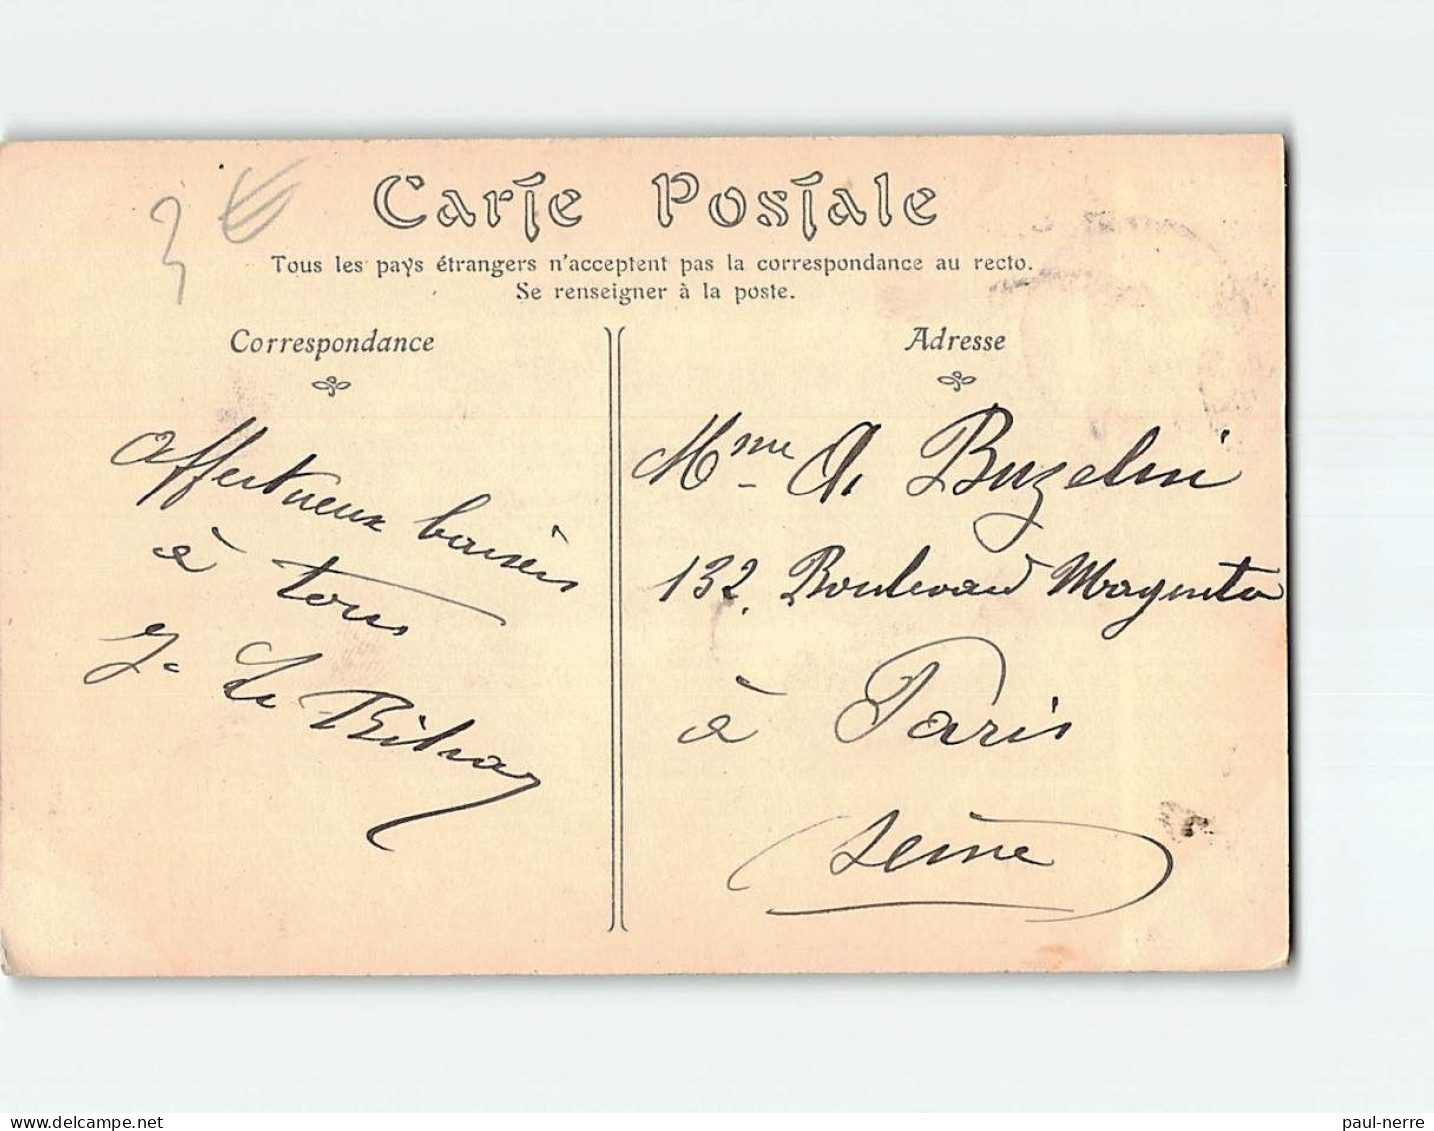 3 €
Carte Postale
Tous les pays étrangers n'acceptent pas la correspondance au recto.
Se renseigner à la poste.
Correspondance
Affectueux baisers
à tous
J. Le
Adresse
Mme A. Buzelin
132, Boulevard Magenta
à Paris
Seine
delcampe.net
paul-nerre